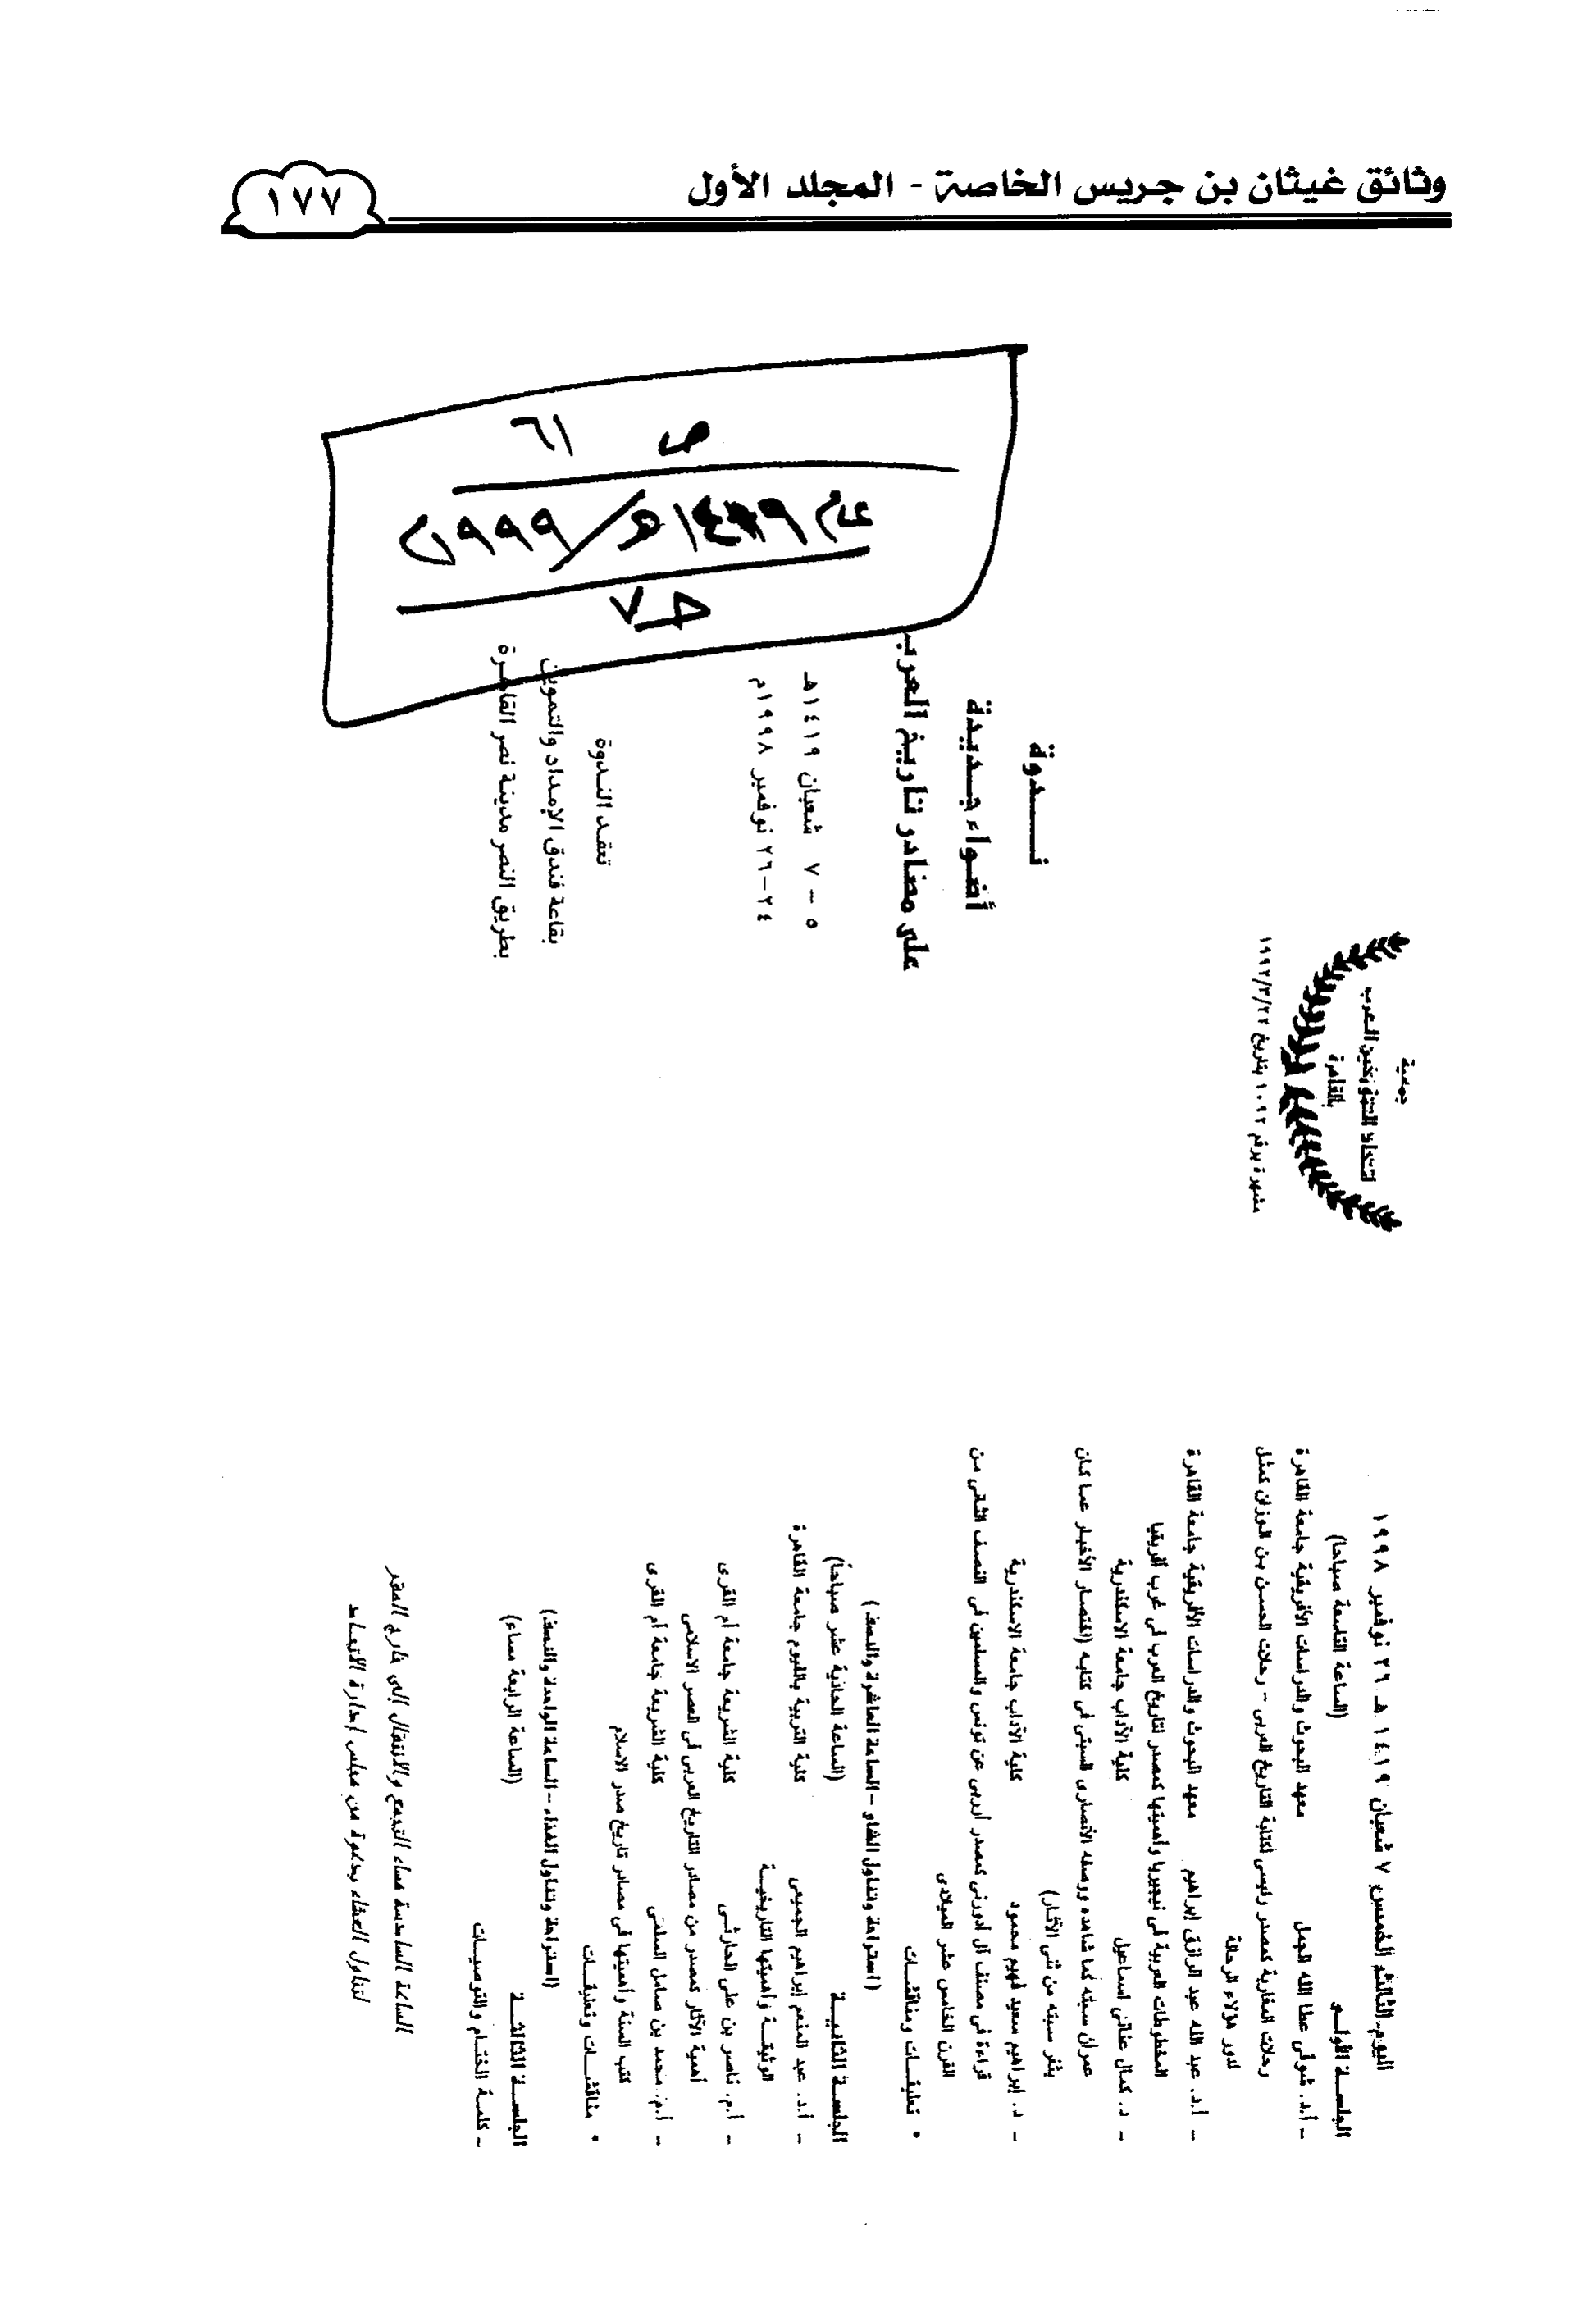 وثائق غيثان بن جريس الخاصة - المجلد الأول
١٧٧
ص ١٦
عام ١٤١٩هـ/١٩٩٩م
حـ٧
جمعية
اتحاد المؤرخين العرب
بالقاهرة
مشهرة برقم ١٠٩٢ بتاريخ ١٩٩٢/٣/٢٢
نــدوة
أضواء جديدة
على مصادر تاريخ العرب
٥ - ٧ شعبان ١٤١٩هـ
٢٤-٢٦ نوفمبر ١٩٩٨م
تعقد الندوة
بقاعة فندق الإمداد والتموين
بطريق النصر مدينة نصر القاهرة
اليوم الثالث الخميس ٧ شعبان ١٤١٩هـ ٢٦ نوفمبر ١٩٩٨
الجلسة الأولى (الساعة التاسعة صباحا)
- أ.د. شوقى عطا الله الجمل معهد البحوث والدراسات الأفريقية جامعة القاهرة
رحلات المغاربة كمصدر رئيسى لكتابة التاريخ العربى - رحلات الحسن بن الوزان كمثل
لدور هؤلاء الرحالة
- أ.د. عبد الله عبد الرازق إبراهيم معهد البحوث والدراسات الأفريقية جامعة القاهرة
المخطوطات العربية فى نيجيريا وأهميتها كمصدر لتاريخ العرب فى غرب أفريقيا
- د. كمال عنانى اسماعيل كلية الآداب جامعة الاسكندرية
عمران سبته كما شاهده ووصفه الأنصارى السبتى فى كتابه (اختصار الأخبار عما كان
بثغر سبته من سنى الآثار)
- د. إبراهيم سعيد فهيم محمود كلية الآداب جامعة الاسكندرية
قراءة فى مصنف آل أدورنى كمصدر أوربى عن تونس والمسلمين فى النصف الثانى من
القرن الخامس عشر الميلادى
• تعليقــات ومناقشــات
(استراحة وتناول الشاى - الساعة العاشرة والنصف)
الجلسـة الثانيـة (الساعة الحادية عشر صباحاً)
- أ.د. عبد المنعم إبراهيم الجميعى كلية التربية بالفيوم جامعة القاهرة
الوثيقـة وأهميتها التاريخيـة
- أ.م. ناصر بن على الحارثـى كلية الشريعة جامعة أم القرى
أهمية الآثار كمصدر من مصادر التاريخ العربى فى العصر الاسلامى
- أ.م. محمد بن صامل السلمى كلية الشريعة جامعة أم القرى
كتب السنة وأهميتها فى مصادر تاريخ صدر الاسلام
• مناقشــات وتعليقــات
(استراحة وتناول الغذاء - الساعة الواحدة والنصف)
الجلسـة الثالثـة (الساعة الرابعة مساء)
- كلمـة الختـام والتوصيـات
الساعة السادسة مساء التجمع والانتقال إلى خارج المقر
لتناول العشاء بدعوة من مجلس إدارة الاتحـاد